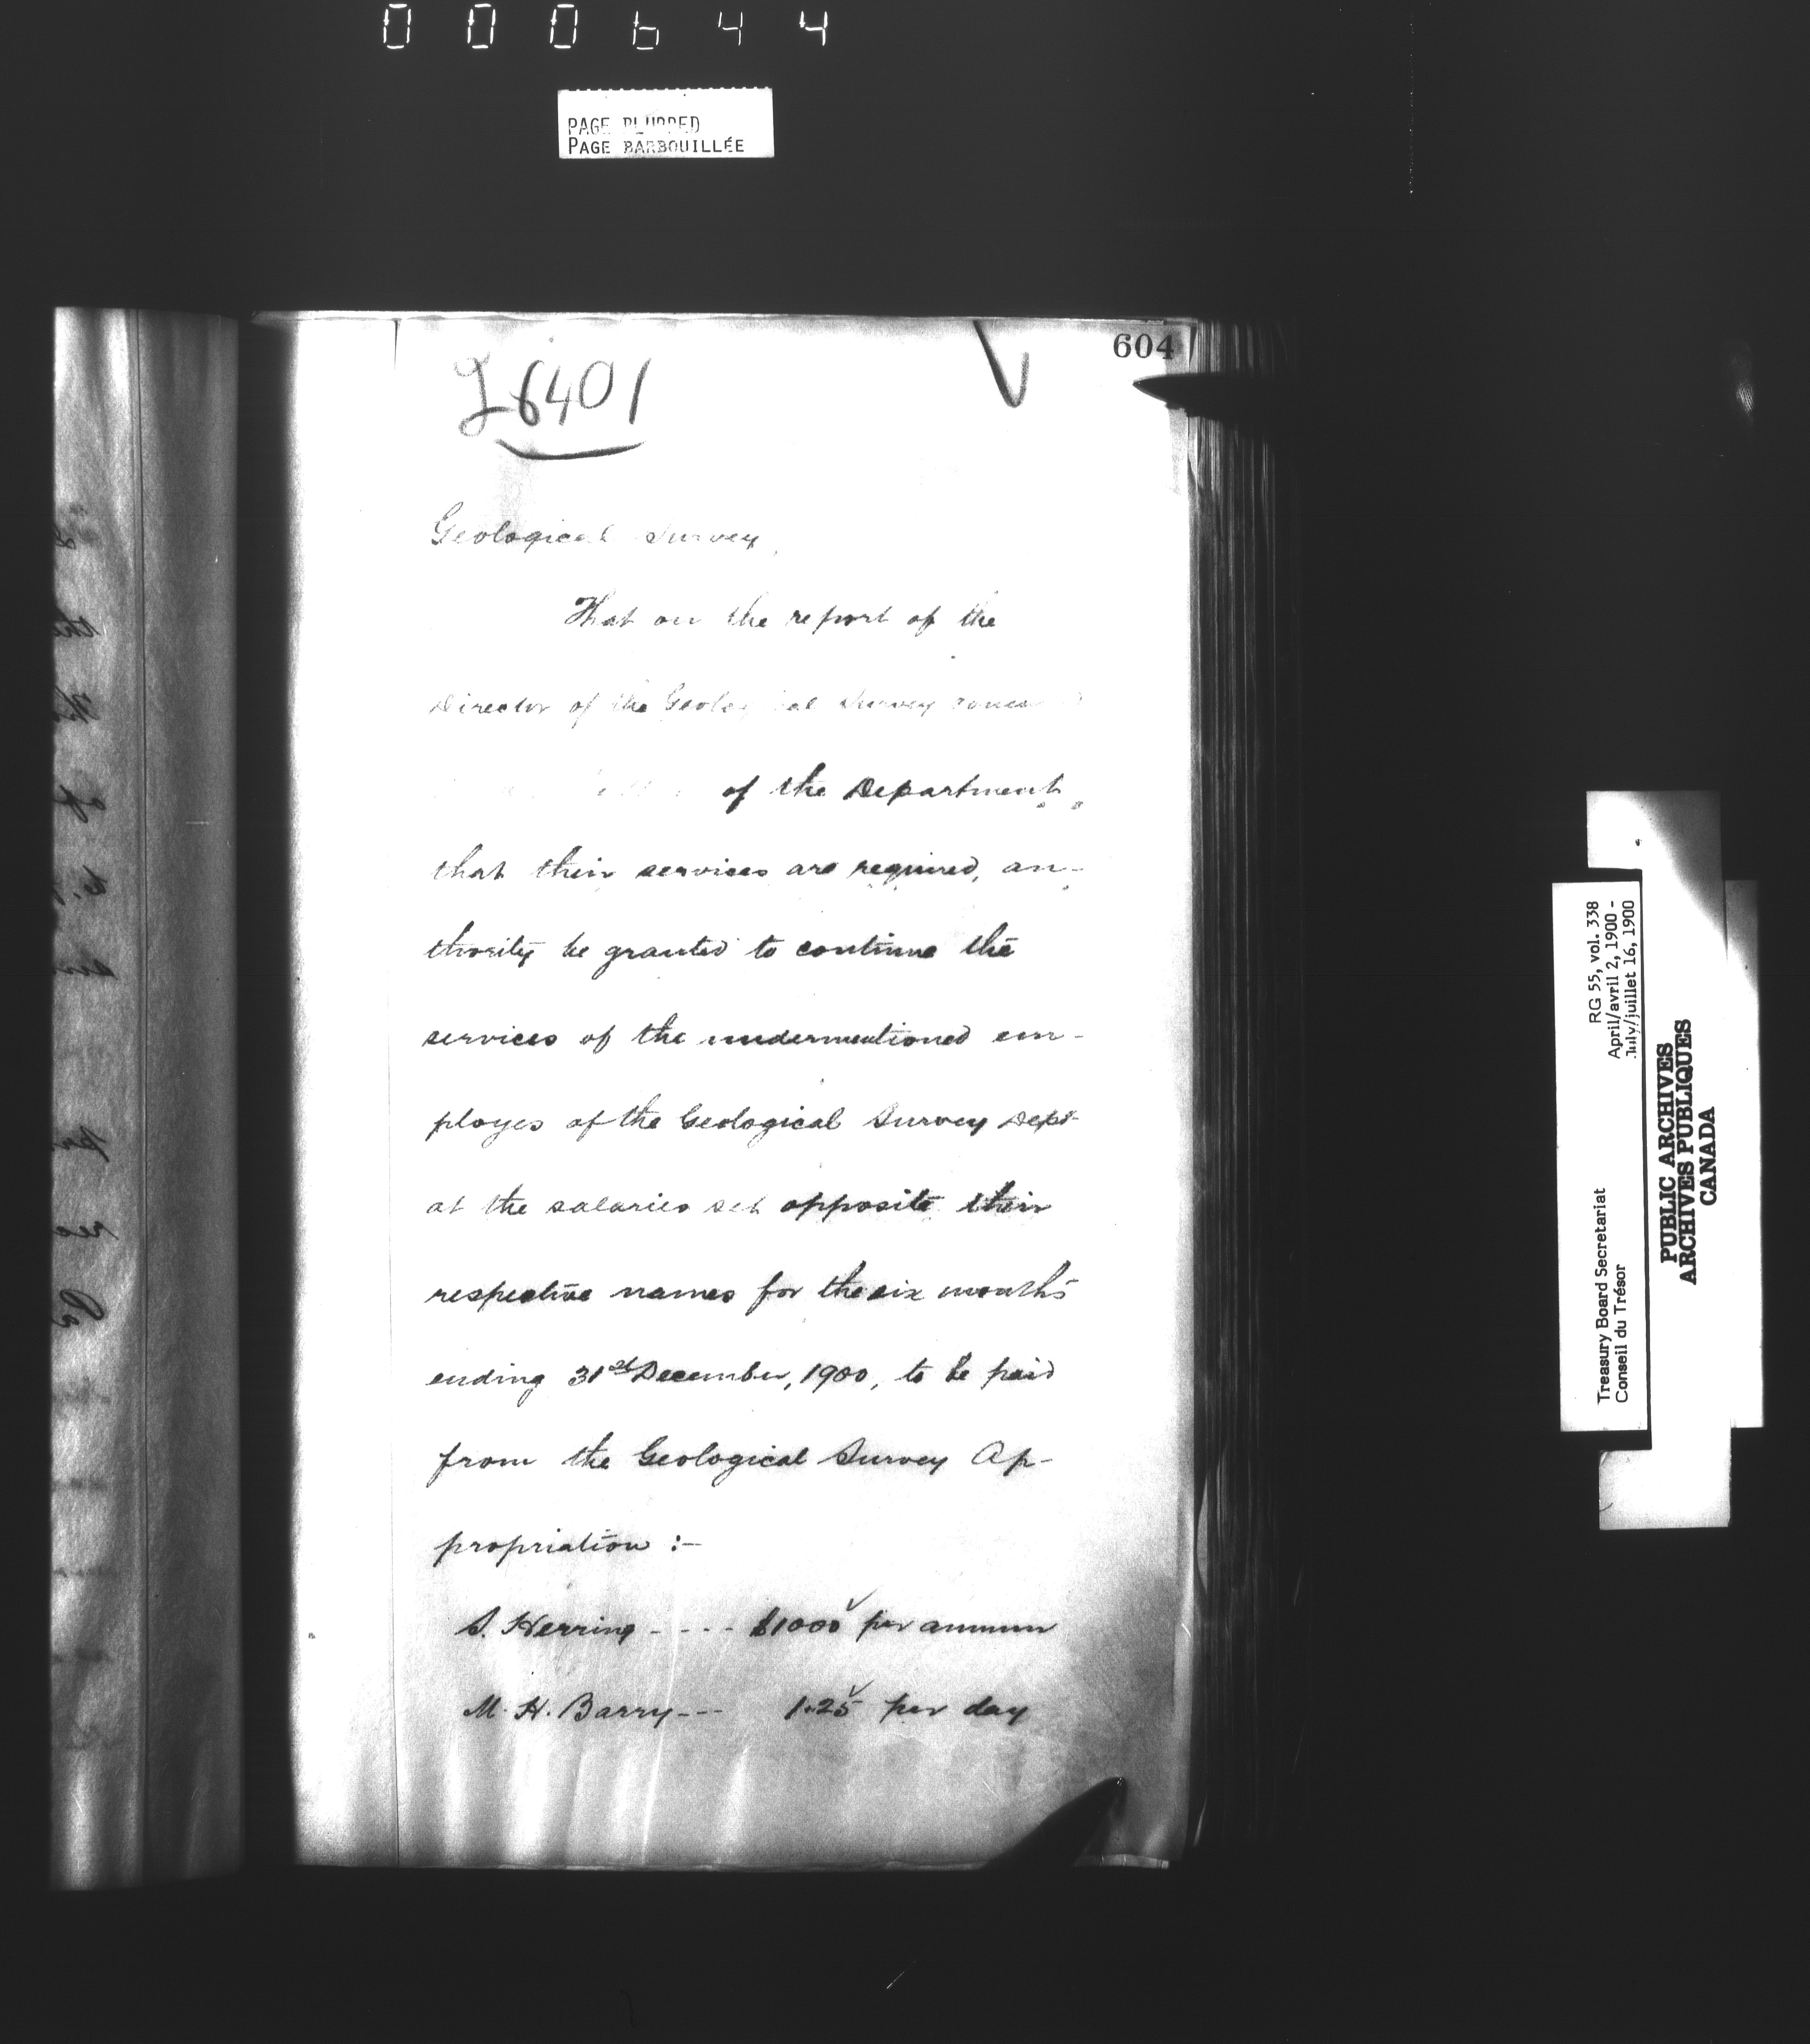 000644
PAGE BLURRED
PAGE BARBOUILLÉE
604
26401
Geological Survey,
That on the report of the
Director of the Geological Survey
of the Department,
that their services are required, au-
thority be granted to continue the
services of the undermentioned em-
ployes of the Geological Survey Dept
at the salaries set opposite their
respective names for the six months
ending 31st December, 1900, to be paid
from the Geological Survey Ap-
propriation :-
S. Herring - - - - $1000 per annum
M. H. Barry - - - 1.25 per day
RG 55, vol. 338
April/avril 2, 1900 -
July/juillet 16, 1900
Treasury Board Secretariat
Conseil du Trésor
PUBLIC ARCHIVES
ARCHIVES PUBLIQUES
CANADA